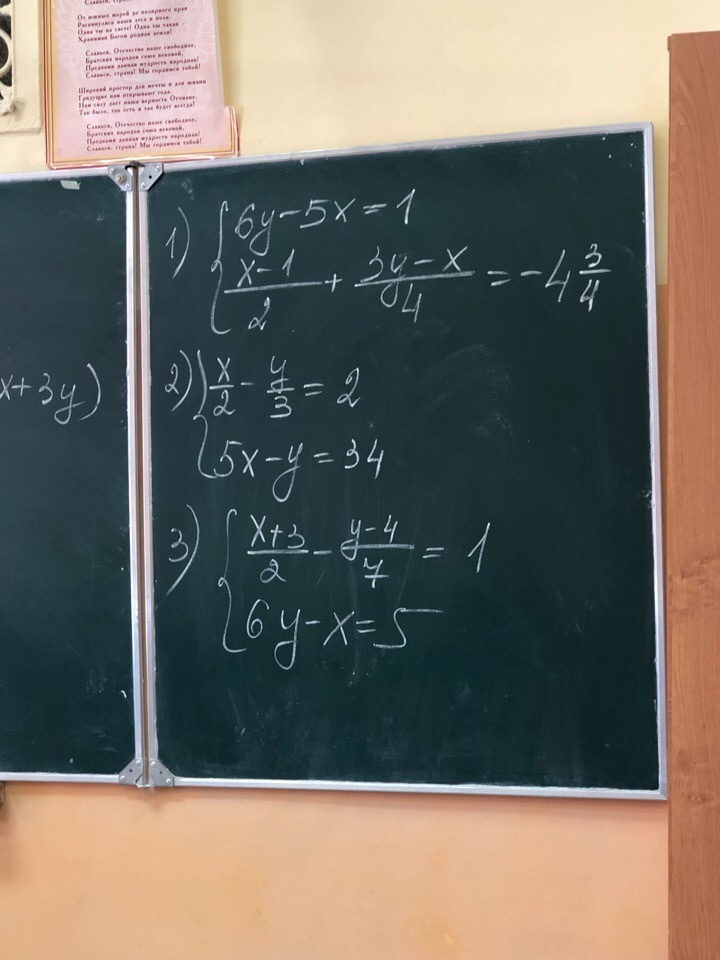 Славься, стран
От южных морей до полярного края
Раскинулись наши леса и поля.
Одна ты на свете! Одна ты такая -
Хранимая Богом родная земля!
Славься, Отечество наше свободное,
Братских народов союз вековой,
Предками данная мудрость народная!
Славься, страна! Мы гордимся тобой!
Широкий простор для мечты и для жизни
Грядущие нам открывают года.
Нам силу дает наша верность Отчизне.
Так было, так есть и так будет всегда!
Славься, Отечество наше свободное,
Братских народов союз вековой,
Предками данная мудрость народная!
Славься, страна! Мы гордимся тобой!
x+3y)
1) { 6y-5x=1
(x-1)/2 + (3y-x)/4 = -4 3/4
2) { x/2 - y/3 = 2
5x-y=34
3) { (x+3)/2 - (y-4)/7 = 1
6y-x=5